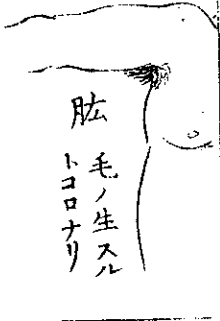 肱
毛ノ生スル
トコロナリ